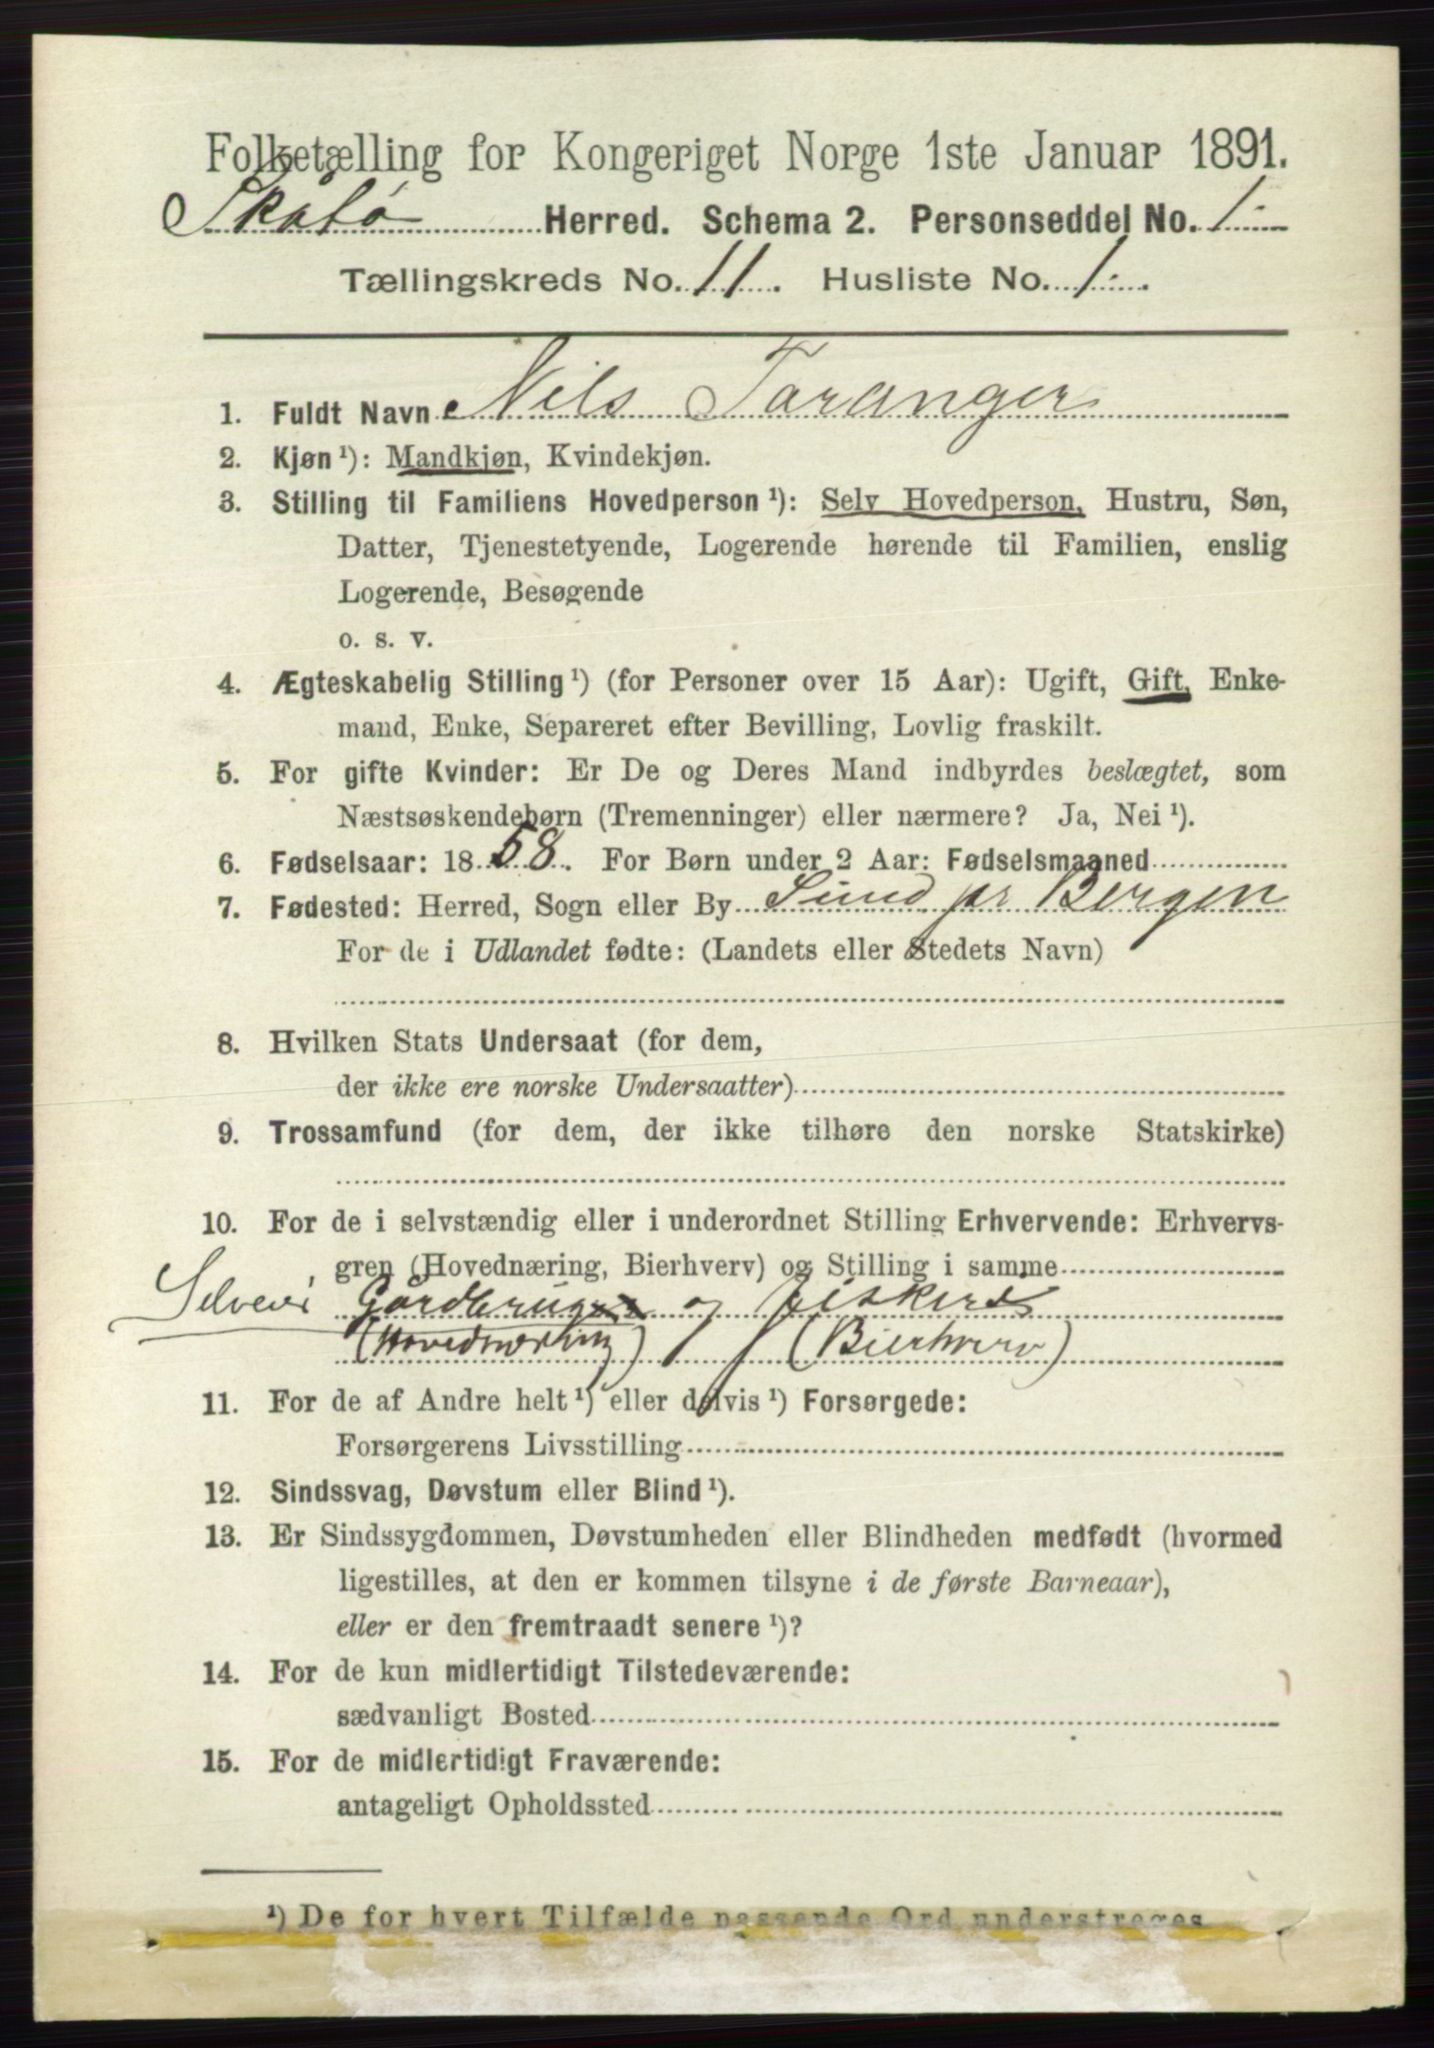 Folketælling for Kongeriget Norge 1ste Januar 1891.
Skåtø Herred. Schema 2. Personseddel No. 1.
Tællingskreds No. 11. Husliste No. 1.
1. Fuldt Navn Nils Taranger
2. Kjøn¹): Mandkjøn, Kvindekjøn.
3. Stilling til Familiens Hovedperson¹): Selv Hovedperson, Hustru, Søn,
Datter, Tjenestetyende, Logerende hørende til Familien, enslig
Logerende, Besøgende
o. s. v.
4. Ægteskabelig Stilling¹) (for Personer over 15 Aar): Ugift, Gift, Enke-
mand, Enke, Separeret efter Bevilling, Lovlig fraskilt.
5. For gifte Kvinder: Er De og Deres Mand indbyrdes beslægtet, som
Næstsøskendebørn (Tremenninger) eller nærmere? Ja, Nei¹).
6. Fødselsaar: 1858. For Børn under 2 Aar: Fødselsmaaned
7. Fødested: Herred, Sogn eller By Sund pr Bergen
For de i Udlandet fødte: (Landets eller Stedets Navn)
8. Hvilken Stats Undersaat (for dem,
der ikke ere norske Undersaatter)
9. Trossamfund (for dem, der ikke tilhøre den norske Statskirke)
10. For de i selvstændig eller i underordnet Stilling Erhvervende: Erhvervs-
gren (Hovednæring, Bierhverv) og Stilling i samme
Selveier Gårdbruger og fisker
(Hovednæring) (Bierhverv)
11. For de af Andre helt¹) eller delvis¹) Forsørgede:
Forsørgerens Livsstilling
12. Sindssvag, Døvstum eller Blind¹).
13. Er Sindssygdommen, Døvstumheden eller Blindheden medfødt (hvormed
ligestilles, at den er kommen tilsyne i de første Barneaar),
eller er den fremtraadt senere¹)?
14. For de kun midlertidigt Tilstedeværende:
sædvanligt Bosted
15. For de midlertidigt Fraværende:
antageligt Opholdssted
¹) De for hvert Tilfælde passende Ord understreges